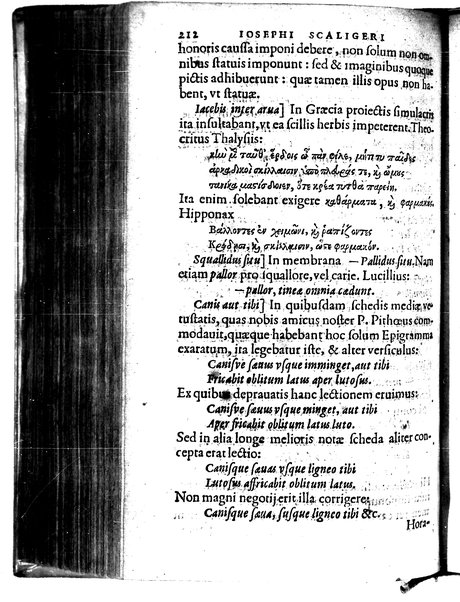 212 IOSEPHI SCALIGERI
honoris caussa imponi debere, non solum non om-
nibus statuis imponunt: sed & imaginibus quoque
pictis adhibuerunt: quæ tamen illis opus non ha-
bent, vt statuæ.
Iacebis inter arua] In Græcia proiectis simulacris
ita insultabant, vt ea scillis herbis impeterent. Theo-
critus Thalysiis:
κἢν μὲν ταῦθ' ἕρδοις ὦ πὰν φίλε, μήτι τυ παῖδες
ἀρκαδικοὶ σκίλλαισιν ὑπὸ πλευράς τε, κὴ ὤμες
τανίκα μαστίσδοιεν, ὅτε κρέα τυτθὰ παρείη.
Ita enim solebant exigere καθάρματα, κὴ φαρμακὲς.
Hipponax
Βάλλοντες ἐν χειμῶνι, κὴ ῥαπίζοντες
Κράδῃσι, κὴ σκίλλῃσιν, ὥστε φαρμακόν.
Squallidus situ] In membrana — Pallidus situ. Nam
etiam pallor pro squallore, vel carie. Lucillius:
— pallor, tineæ omnia cædunt.
Canis aut tibi] In quibusdam schedis mediæ ve-
tustatis, quas nobis amicus noster P. Pithœus com-
modauit, quæque habebant hoc solum Epigramma
exaratum, ita legebatur iste, & alter versiculus:
Canisve sæuus vsque imminget, aut tibi
Fricabit oblitum latus aper lutosus.
Ex quibus deprauatis hanc lectionem eruimus:
Canisve sæuus vsque minget, aut tibi
Aper fricabit oblitum latus luto.
Sed in alia longe melioris notæ scheda aliter con-
cepta erat lectio:
Canisque sæuas vsque ligneo tibi
Lutosus affricabit oblitum latus.
Non magni negotij erit illa corrigere:
Canisque sæua, susque ligneo tibi &c.
Hora-